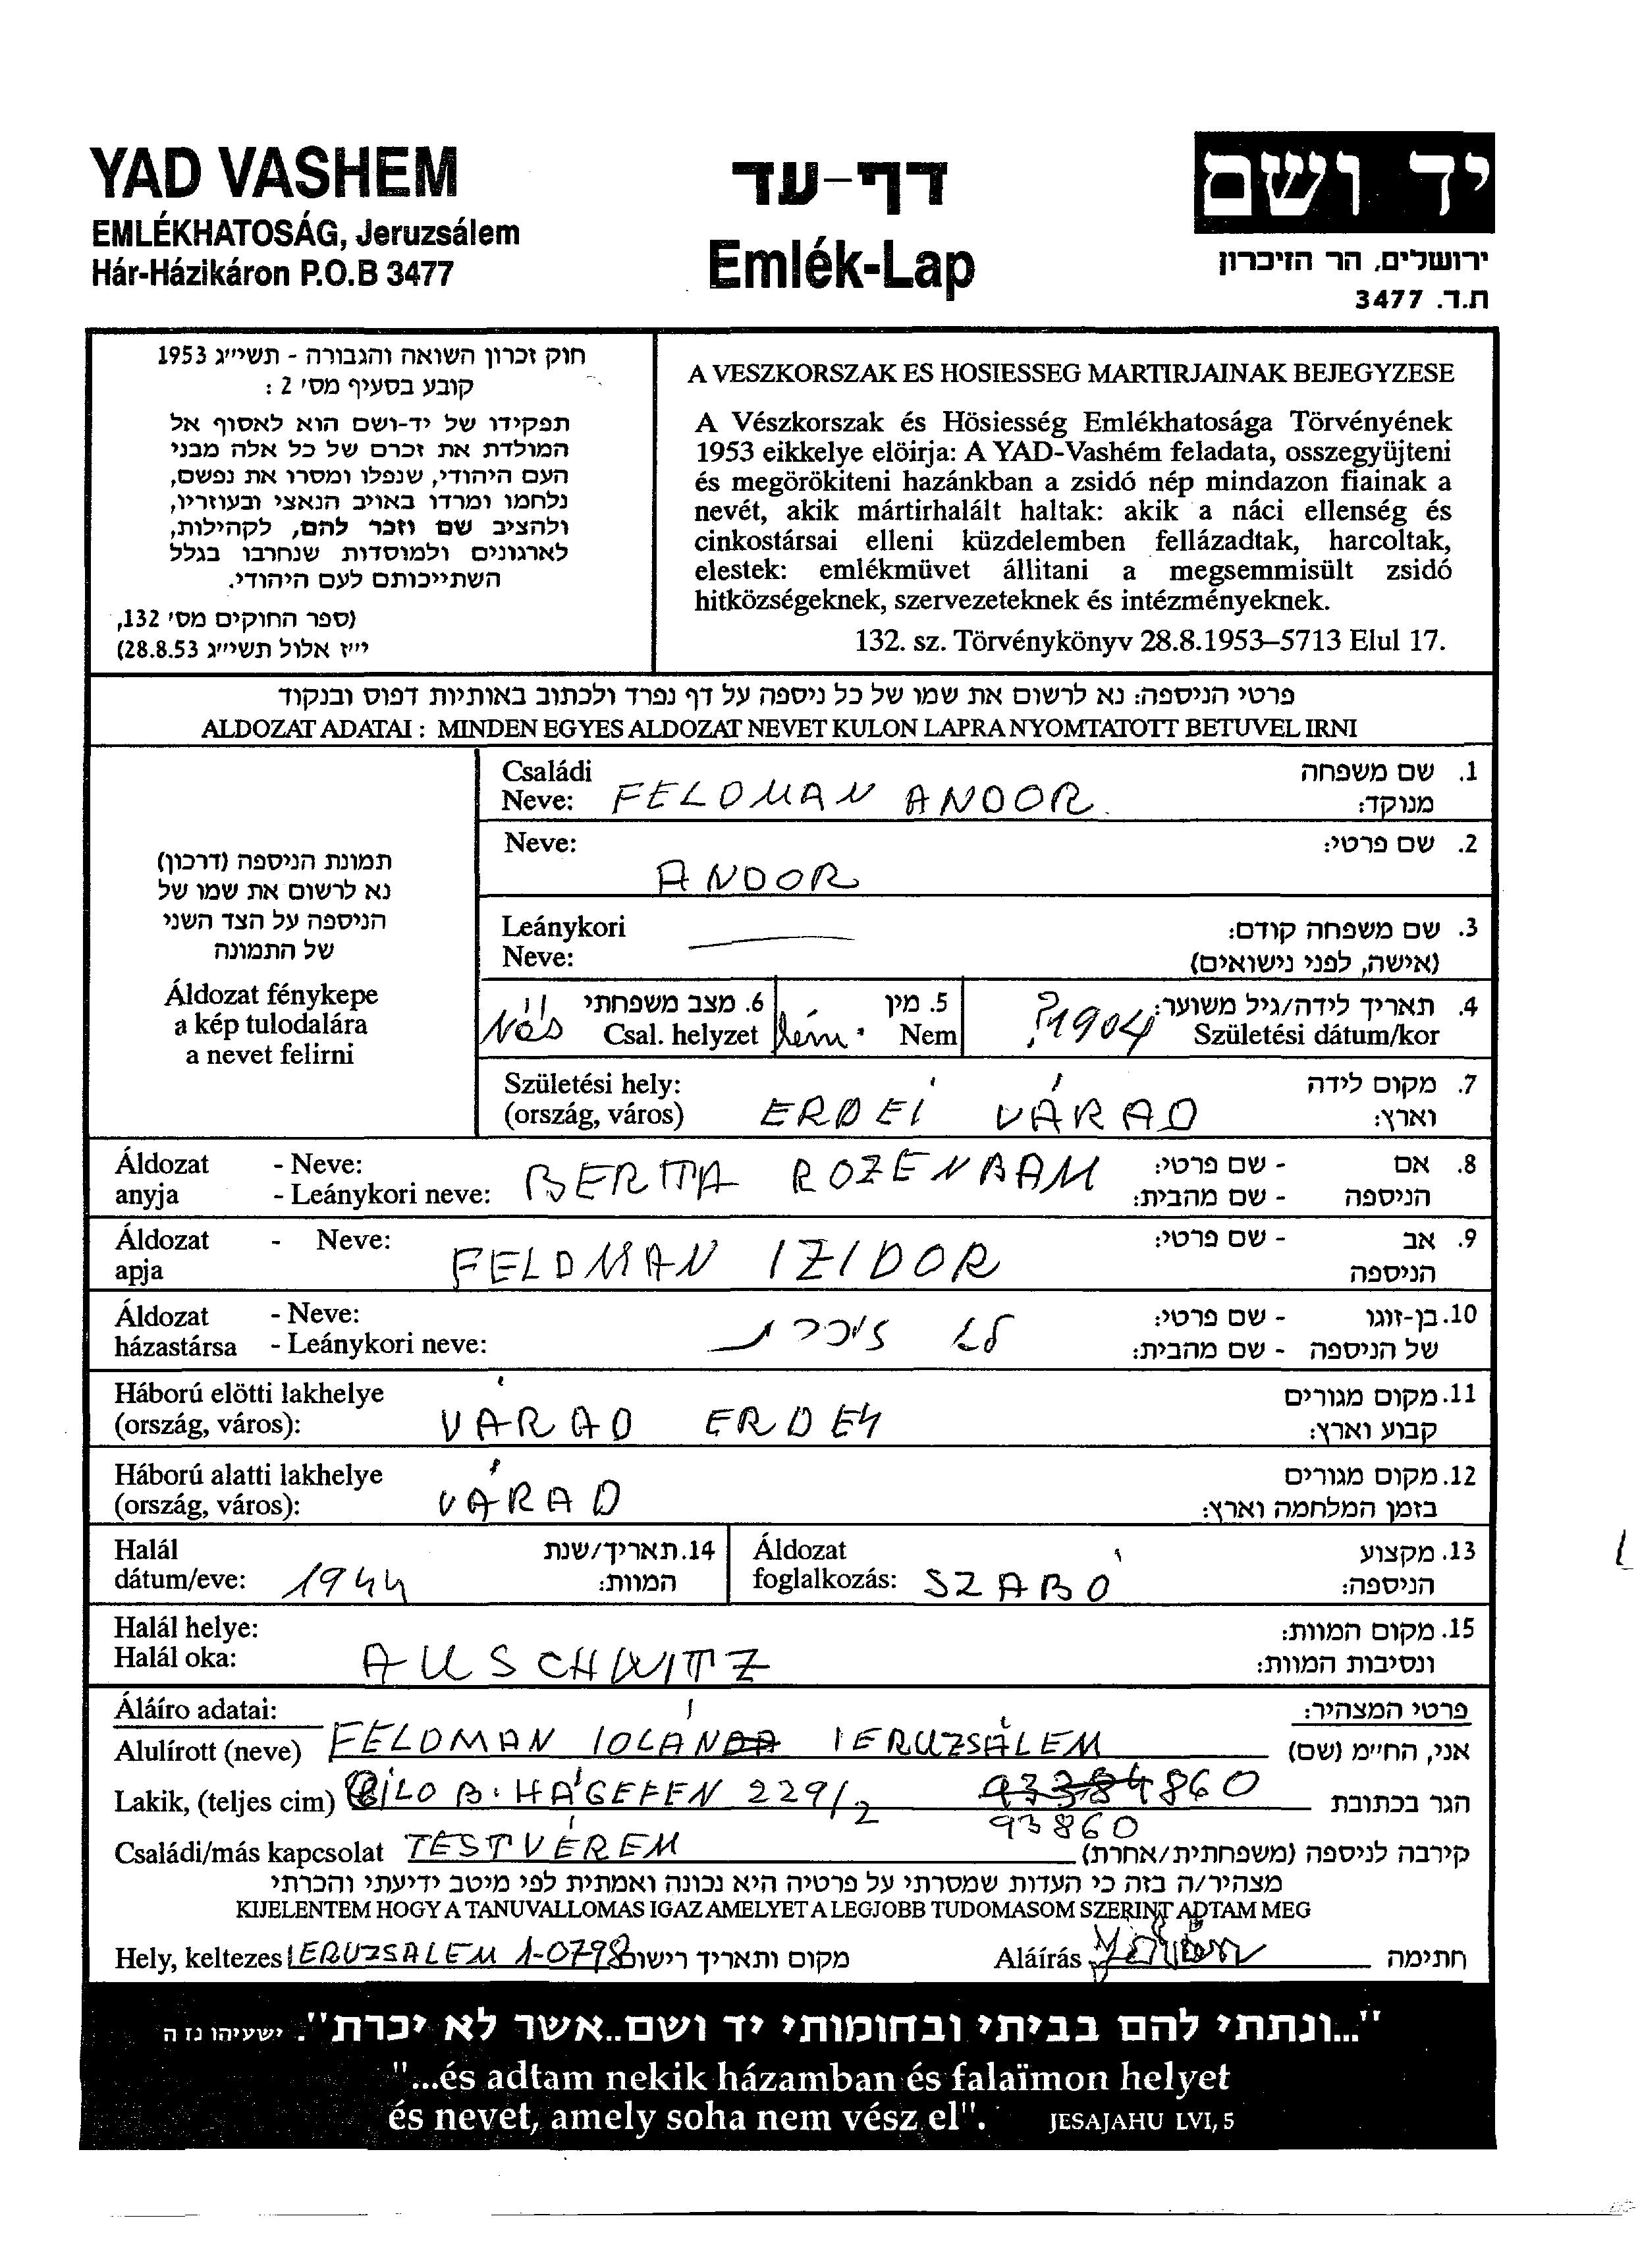 YAD VASHEM
EMLÉKHATOSÁG, Jeruzsálem
Hár-Házikáron P.O.B 3477
דף-עד
Emlék-Lap
יד ושם
ירושלים, הר הזיכרון
ת.ד. 3477
חוק זכרון השואה והגבורה - תשי"ג 1953
קובע בסעיף מס' 2 :
תפקידו של יד-ושם הוא לאסוף אל
המולדת את זכרם של כל אלה מבני
העם היהודי, שנפלו ומסרו את נפשם,
נלחמו ומרדו באויב הנאצי ובעוזריו,
ולהציב שם וזכר להם, לקהילות,
לארגונים ולמוסדות שנחרבו בגלל
השתייכותם לעם היהודי.
(ספר החוקים מס' 132,
י"ז אלול תשי"ג 28.8.53)
A VESZKORSZAK ES HOSIESSEG MARTIRJAINAK BEJEGYZESE
A Vészkorszak és Hösiesség Emlékhatosága Törvényének
1953 eikkelye elöirja: A YAD-Vashém feladata, osszegyüjteni
és megörökiteni hazánkban a zsidó nép mindazon fiainak a
nevét, akik mártirhalált haltak: akik a náci ellenség és
cinkostársai elleni küzdelemben fellázadtak, harcoltak,
elestek: emlékmüvet állitani a megsemmisült zsidó
hitközségeknek, szervezeteknek és intézményeknek.
132. sz. Törvénykönyv 28.8.1953–5713 Elul 17.
פרטי הניספה: נא לרשום את שמו של כל ניספה על דף נפרד ולכתוב באותיות דפוס ובנקוד
ALDOZAT ADATAI : MINDEN EGYES ALDOZAT NEVET KULON LAPRA NYOMTATOTT BETUVEL IRNI
תמונת הניספה (דרכון)
נא לרשום את שמו של
הניספה על הצד השני
של התמונה
Áldozat fénykepe
a kép tulodalára
a nevet felirni
Családi 1. שם משפחה
Neve: FELDMAN ANDOR מנוקד:
Neve: 2. שם פרטי:
ANDOR
Leánykori 3. שם משפחה קודם:
Neve: (אישה, לפני נישואים)
6. מצב משפחתי 5. מין 4. תאריך לידה/גיל משוער:
Nős Csal. helyzet Nem ?1904 Születési dátum/kor
Születési hely: 7. מקום לידה
(ország, város) ERDEI VÁRAD וארץ:
Áldozat - Neve: BERTA ROZENBAM - שם פרטי: 8. אם
anyja - Leánykori neve: - שם מהבית: הניספה
Áldozat - Neve: - שם פרטי: 9. אב
apja FELDMAN IZIDOR הניספה
Áldozat - Neve: - שם פרטי: 10. בן-זוגו
házastársa - Leánykori neve: לא זוכרת - שם מהבית: של הניספה
Háború elötti lakhelye 11. מקום מגורים
(ország, város): VÁRAD ERDEY קבוע וארץ:
Háború alatti lakhelye 12. מקום מגורים
(ország, város): VÁRAD בזמן המלחמה וארץ:
Halál 14. תאריך/שנת
dátum/eve: 1944 המוות:
Áldozat 13. מקצוע
foglalkozás: SZABÓ הניספה:
Halál helye: 15. מקום המוות:
Halál oka: AUSCHWITZ ונסיבות המוות:
Áláíro adatai: פרטי המצהיר:
Alulírott (neve) FELDMAN IOLÁN IERUZSÁLEM אני, החי"מ (שם)
Lakik, (teljes cim) GILO B. HÁGEFEN 229/2 הגר בכתובת
93860
Családi/más kapcsolat TESTVÉREM קירבה לניספה (משפחתית/אחרת)
מצהיר/ה בזה כי העדות שמסרתי על פרטיה היא נכונה ואמתית לפי מיטב ידיעתי והכרתי
KIJELENTEM HOGY A TANUVALLOMAS IGAZ AMELYET A LEGJOBB TUDOMASOM SZERINT ADTAM MEG
Hely, keltezes IERUZSALEM 1-0798 מקום ותאריך רישום Aláírás חתימה
"...ונתתי להם בביתי ובחומותי יד ושם..אשר לא יכרת". ישעיהו נז ה
"...és adtam nekik házamban és falaïmon helyet
és nevet, amely soha nem vész el". JESAJAHU LVI, 5